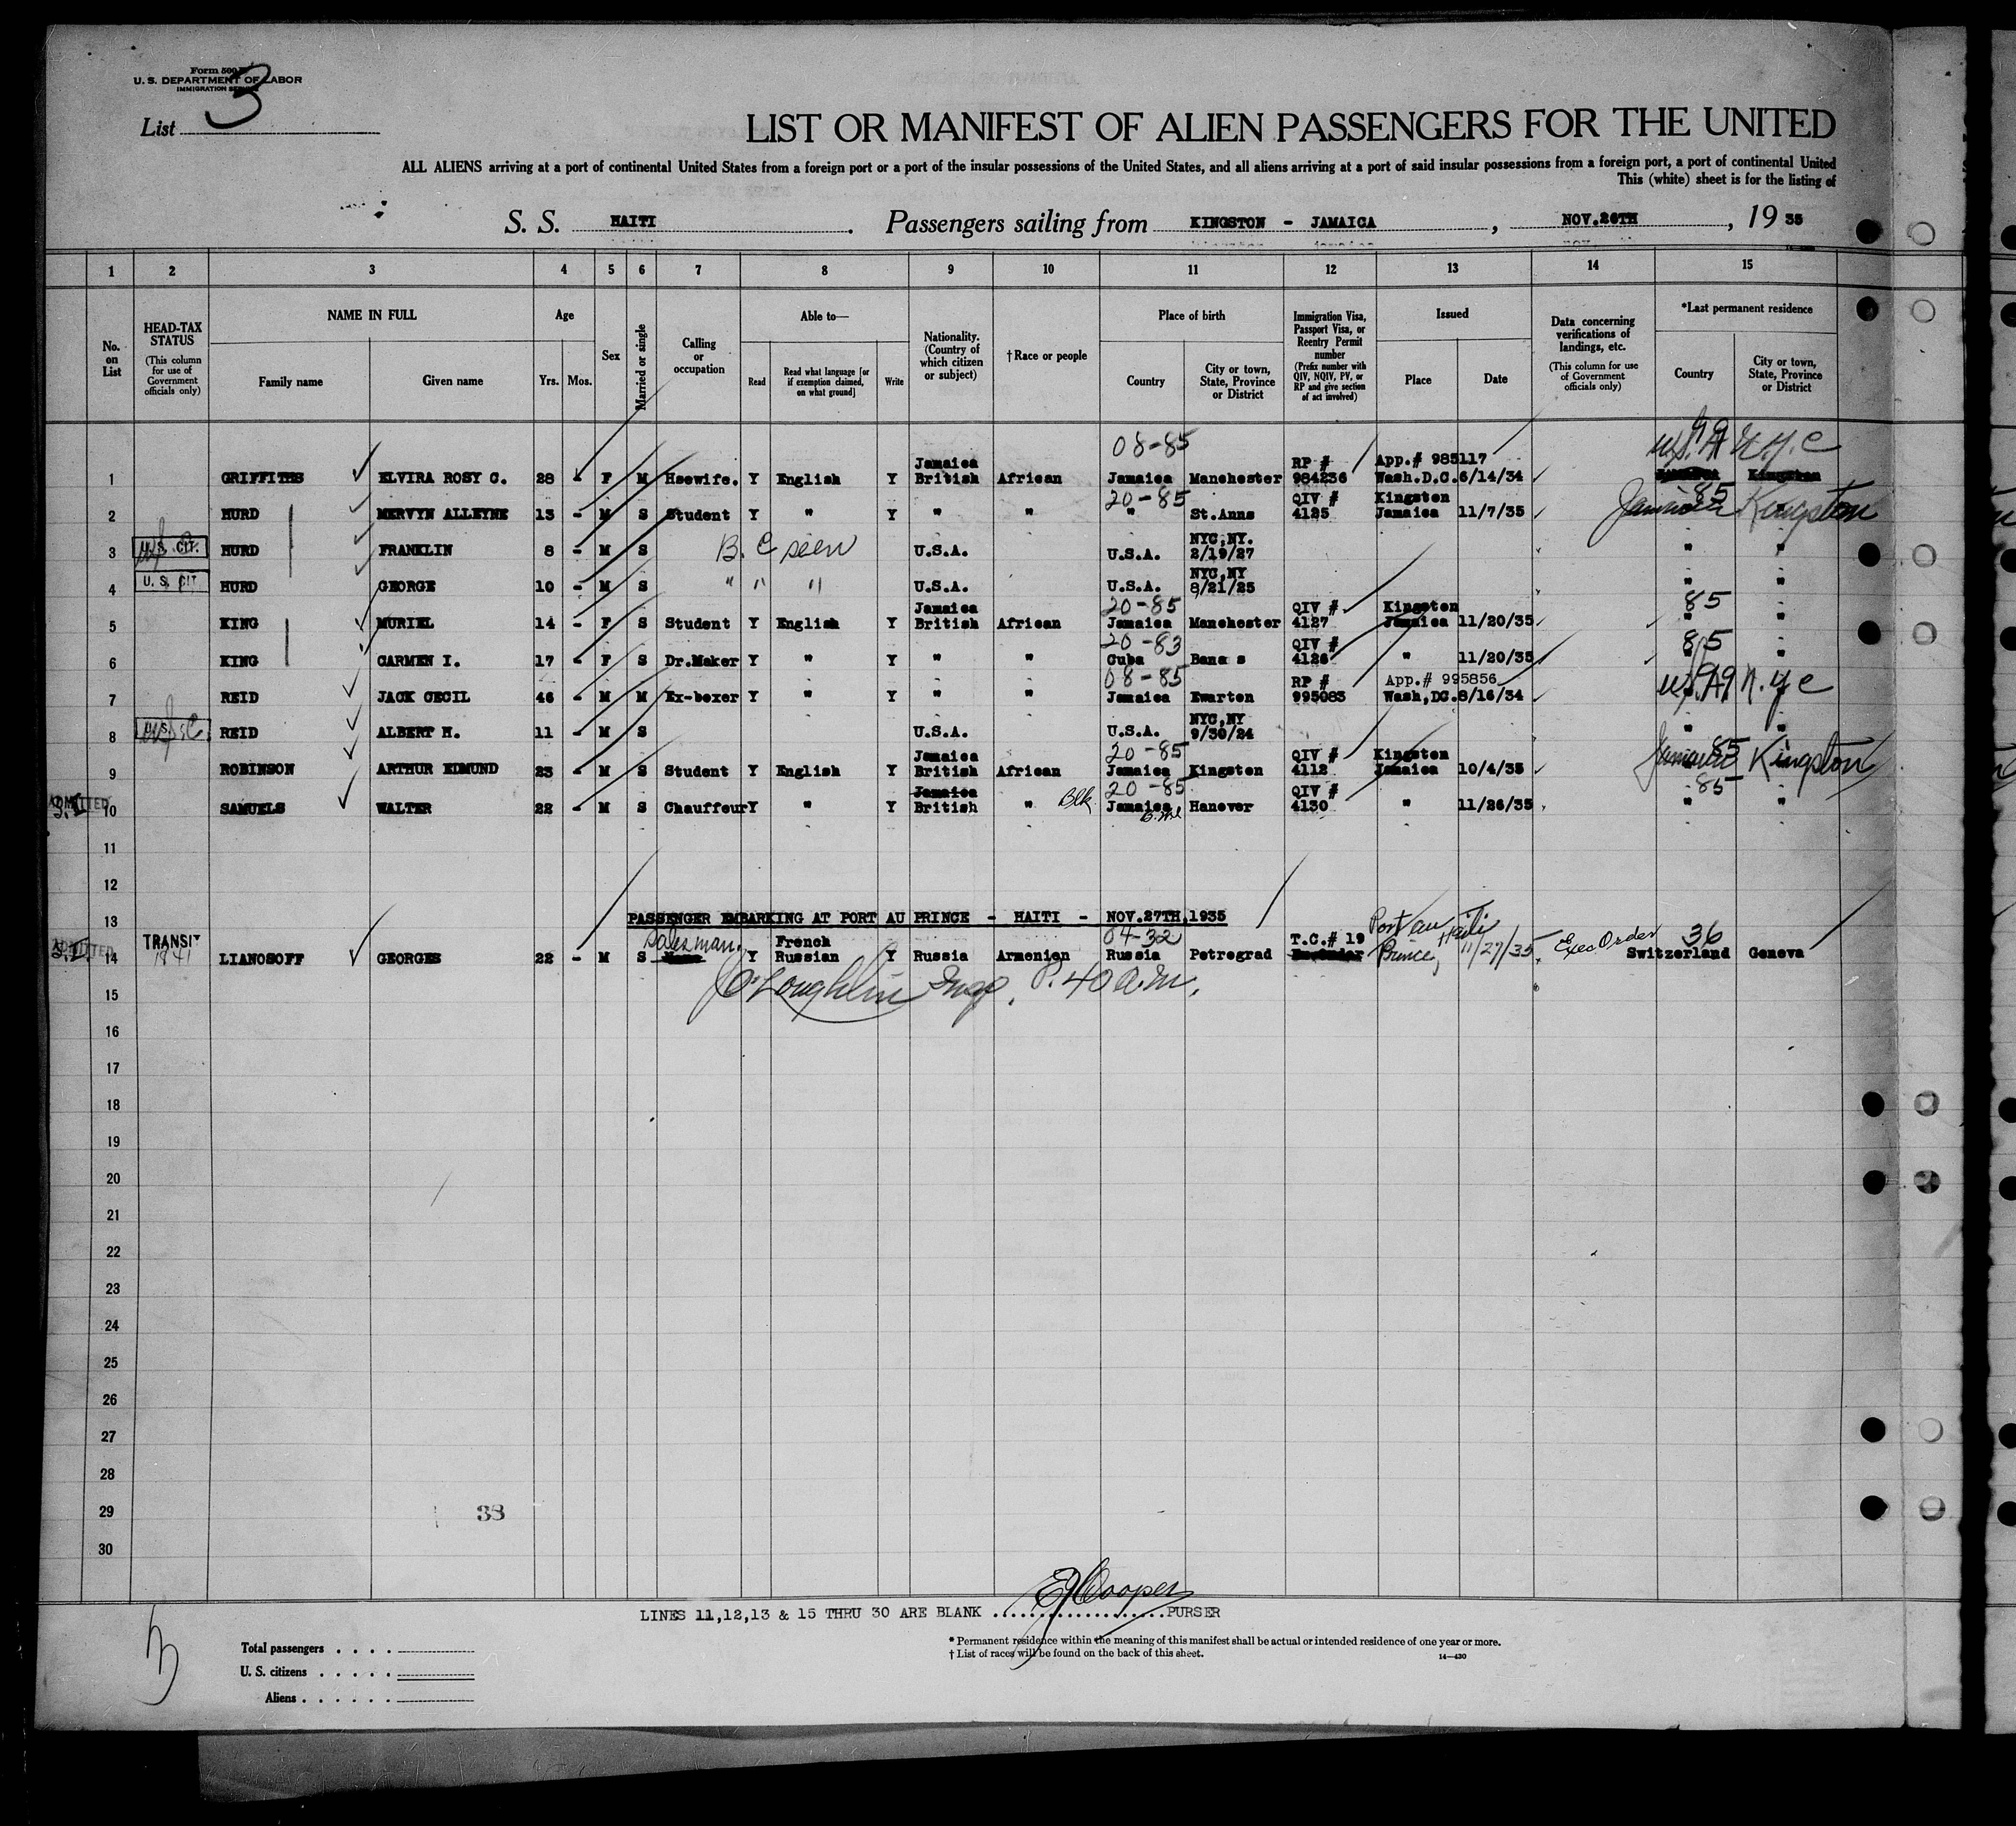 Form 500
U. S. DEPARTMENT OF LABOR
IMMIGRATION SERVICE
List 3
LIST OR MANIFEST OF ALIEN PASSENGERS FOR THE UNITED
ALL ALIENS arriving at a port of continental United States from a foreign port or a port of the insular possessions of the United States, and all aliens arriving at a port of said insular possessions from a foreign port, a port of continental United
This (white) sheet is for the listing of
S. S. HAITI. Passengers sailing from KINGSTON - JAMAICA, NOV.26TH, 19 35
1 2 3 4 5 6 7 8 9 10 11 12 13 14 15
No. on List
HEAD-TAX STATUS (This column for use of Government officials only)
NAME IN FULL
Family name Given name
Age
Yrs. Mos.
Sex
Married or single
Calling or occupation
Able to—
Read Read what language [or if exemption claimed, on what ground] Write
Nationality. (Country of which citizen or subject)
† Race or people
Place of birth
Country City or town, State, Province or District
Immigration Visa, Passport Visa, or Reentry Permit number (Prefix number with QIV, NQIV, PV, or RP and give section of act involved)
Issued
Place Date
Data concerning verifications of landings, etc. (This column for use of Government officials only)
*Last permanent residence
Country City or town, State, Province or District
08-85 99
Jamaica RP # App.# 985117 U.S.A N.Y.C
1 GRIFFITHS ELVIRA ROSY C. 28 - F M Hsewife. Y English Y British African Jamaica Manchester 984236 Wash.D.C. 6/14/34 Kingston
20-85 QIV # Kingston 85
2 HURD MERVYN ALLEYNE 13 - M S Student Y " Y " " " St.Anns 4125 Jamaica 11/7/35 Jamaica Kingston
NYC,NY.
3 U.S. CIT. HURD FRANKLIN 8 - M S B. C seen U.S.A. U.S.A. 2/19/27 " "
NYC,NY
4 U.S. CIT HURD GEORGE 10 - M S " " " U.S.A. U.S.A. 8/21/25 " "
Jamaica 20-85 QIV # Kingston 85
5 KING MURIEL 14 - F S Student Y English Y British African Jamaica Manchester 4127 Jamaica 11/20/35 " "
20-83 QIV # 85
6 KING CARMEN I. 17 - F S Dr.Maker Y " Y " " Cuba Banes 4126 " 11/20/35 " "
08-85 RP # App.# 995856 99
7 REID JACK CECIL 46 - M M Ex-boxer Y " Y " " Jamaica Ewarton 995083 Wash,DC. 8/16/34 U.S.A N.Y.C
NYC,NY
8 U.S.C. REID ALBERT H. 11 - M S U.S.A. U.S.A. 9/30/24 " "
Jamaica 20-85 QIV # Kingston 85
9 ROBINSON ARTHUR EDMUND 23 - M S Student Y English Y British African Jamaica Kingston 4112 Jamaica 10/4/35 Jamaica Kingston
Jamaica 20-85 QIV # 85
ADMITTED S.I. 10 SAMUELS WALTER 22 - M S Chauffeur Y " Y British " Blk Jamaica, Hanover 4130 " 11/26/35 " "
11
12
13 PASSENGER EMBARKING AT PORT AU PRINCE - HAITI - NOV.27TH,1935
TRANSIT Salesman. French 04-32 T.C.# 19 Port au Haiti Exec Order 36
ADMITTED S.I. 14 1941 LIANOSOFF GEORGES 22 - M S Y Russian Y Russia Armenian Russia Petrograd Prince, 11/27/35 Switzerland Geneva
O'Loughlin Insp. P. 40 a.m.
15
16
17
18
19
20
21
22
23
24
25
26
27
28
29 38
30
LINES 11,12,13 & 15 THRU 30 ARE BLANK ....................PURSER
E Cooper
3
Total passengers
U. S. citizens
Aliens
* Permanent residence within the meaning of this manifest shall be actual or intended residence of one year or more.
† List of races will be found on the back of this sheet.
14—430